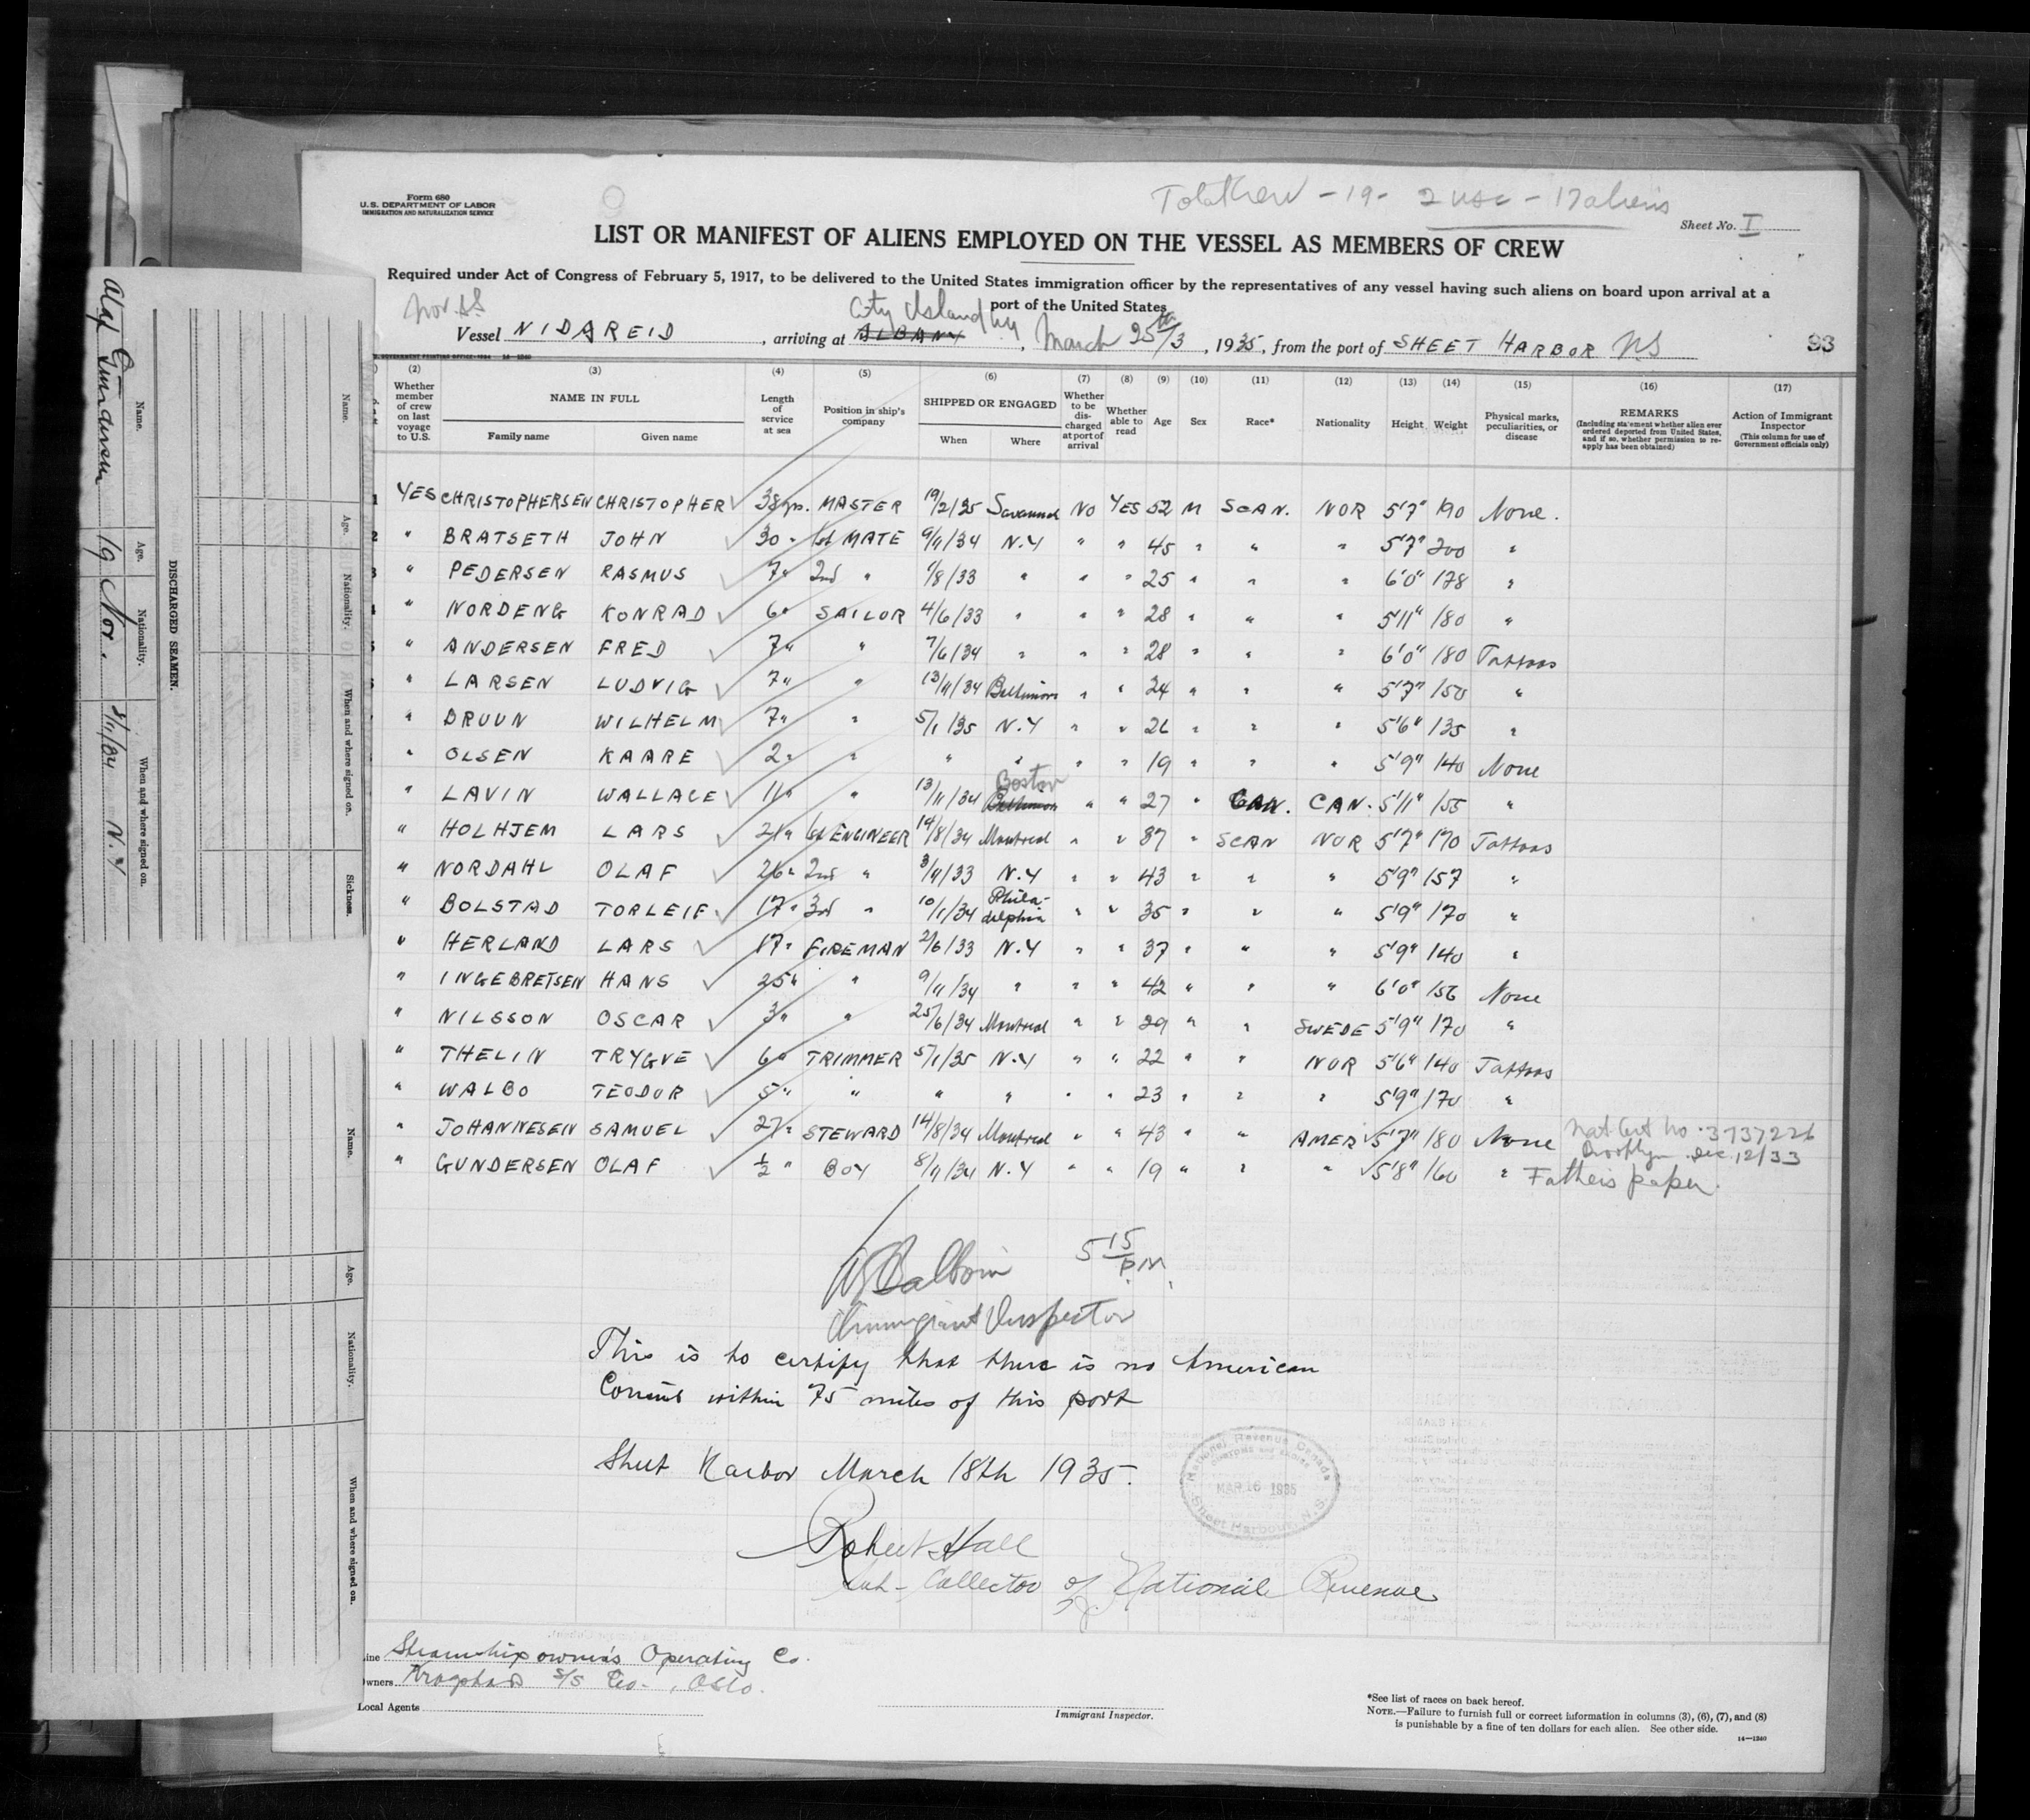 Form 680
U.S. DEPARTMENT OF LABOR
IMMIGRATION AND NATURALIZATION SERVICE
Total Crew - 19 - 2 USC - 17 aliens
Sheet No. I
LIST OR MANIFEST OF ALIENS EMPLOYED ON THE VESSEL AS MEMBERS OF CREW
Required under Act of Congress of February 5, 1917, to be delivered to the United States immigration officer by the representatives of any vessel having such aliens on board upon arrival at a
port of the United States
Nor. SS City Island NY
Vessel NIDAREID, arriving at ALBANY, March 25th/3, 1935, from the port of SHEET HARBOR NS 93
(2) Whether member of crew on last voyage to U.S. (3) NAME IN FULL Family name Given name (4) Length of service at sea (5) Position in ship's company (6) SHIPPED OR ENGAGED When Where (7) Whether to be discharged at port of arrival (8) Whether able to read (9) Age (10) Sex (11) Race* (12) Nationality (13) Height (14) Weight (15) Physical marks, peculiarities, or disease (16) REMARKS (Including statement whether alien ever ordered deported from United States, and if so, whether permission to re-apply has been obtained) (17) Action of Immigrant Inspector (This column for use of Government officials only)
1 YES CHRISTOPHERSEN CHRISTOPHER 38 yrs. MASTER 19/2/35 Savannah NO YES 52 M SCAN. NOR 5'7" 190 None.
2 " BRATSETH JOHN 30 " 1st MATE 9/11/34 N.Y " " 45 " " " 5'7" 200 "
3 " PEDERSEN RASMUS 7 " 2nd " 1/8/33 " " " 25 " " " 6'0" 178 "
4 " NORDENG KONRAD 6 " SAILOR 4/6/33 " " " 28 " " " 5'11" 180 "
5 " ANDERSEN FRED 7 " " 7/6/34 " " " 28 " " " 6'0" 180 Tattoos
" LARSEN LUDVIG 7 " " 13/11/34 Baltimore " " 24 " " " 5'7" 150 "
" BRUUN WILHELM 7 " " 5/1/35 N.Y " " 26 " " " 5'6" 135 "
" OLSEN KAARE 2 " " " " " " 19 " " " 5'9" 140 None
" LAVIN WALLACE 11 " " 13/11/34 Boston Baltimore " " 27 " CAN. CAN. 5'11" 155 "
" HOLHJEM LARS 21 " 1st ENGINEER 14/8/34 Montreal " " 37 " SCAN NOR 5'7" 170 Tattoos
" NORDAHL OLAF 26 " 2nd " 3/11/33 N.Y " " 43 " " " 5'9" 157 "
" BOLSTAD TORLEIF 17 " 3rd " 10/1/34 Philadelphia " " 35 " " " 5'9" 170 "
" HERLAND LARS 17 " FIREMAN 2/6/33 N.Y " " 37 " " " 5'9" 140 "
" INGEBRETSEN HANS 25 " " 9/11/34 " " " 42 " " " 6'0" 156 None
" NILSSON OSCAR 3 " " 25/6/34 Montreal " " 29 " " SWEDE 5'9" 170 "
" THELIN TRYGVE 6 " TRIMMER 5/1/35 N.Y " " 22 " " NOR 5'6" 140 Tattoos
" WALBO TEODOR 5 " " " " " " 23 " " " 5'9" 170 "
" JOHANNESEN SAMUEL 27 " STEWARD 14/8/34 Montreal " " 43 " " AMER 5'7" 180 None Nat Cert No. 3737226 Brooklyn Dec. 12/33
" GUNDERSEN OLAF 1/2 " BOY 8/11/34 N.Y " " 19 " " " 5'8" 160 " Father's paper.
5 15 P.M.
Immigrant Inspector
This is to certify that there is no American
Consul within 75 miles of this port
Sheet Harbor March 18th 1935.
National Revenue Canada
MAR 16 1935
Sheet Harbour, N.S.
Robert Hall
Sub-Collector of National Revenue
Line Steamship owner's Operating Co.
Owners S/S Co., Oslo.
Local Agents
Immigrant Inspector.
*See list of races on back hereof.
NOTE.—Failure to furnish full or correct information in columns (3), (6), (7), and (8)
is punishable by a fine of ten dollars for each alien. See other side.
14—1240
DISCHARGED SEAMEN.
Name. Age. Nationality. When and where signed on.
Gundersen 19 Nor. 8/11/34 N.Y
Name. Age. Nationality. When and where signed on. Sickness.
Name. Age. Nationality. When and where signed on.